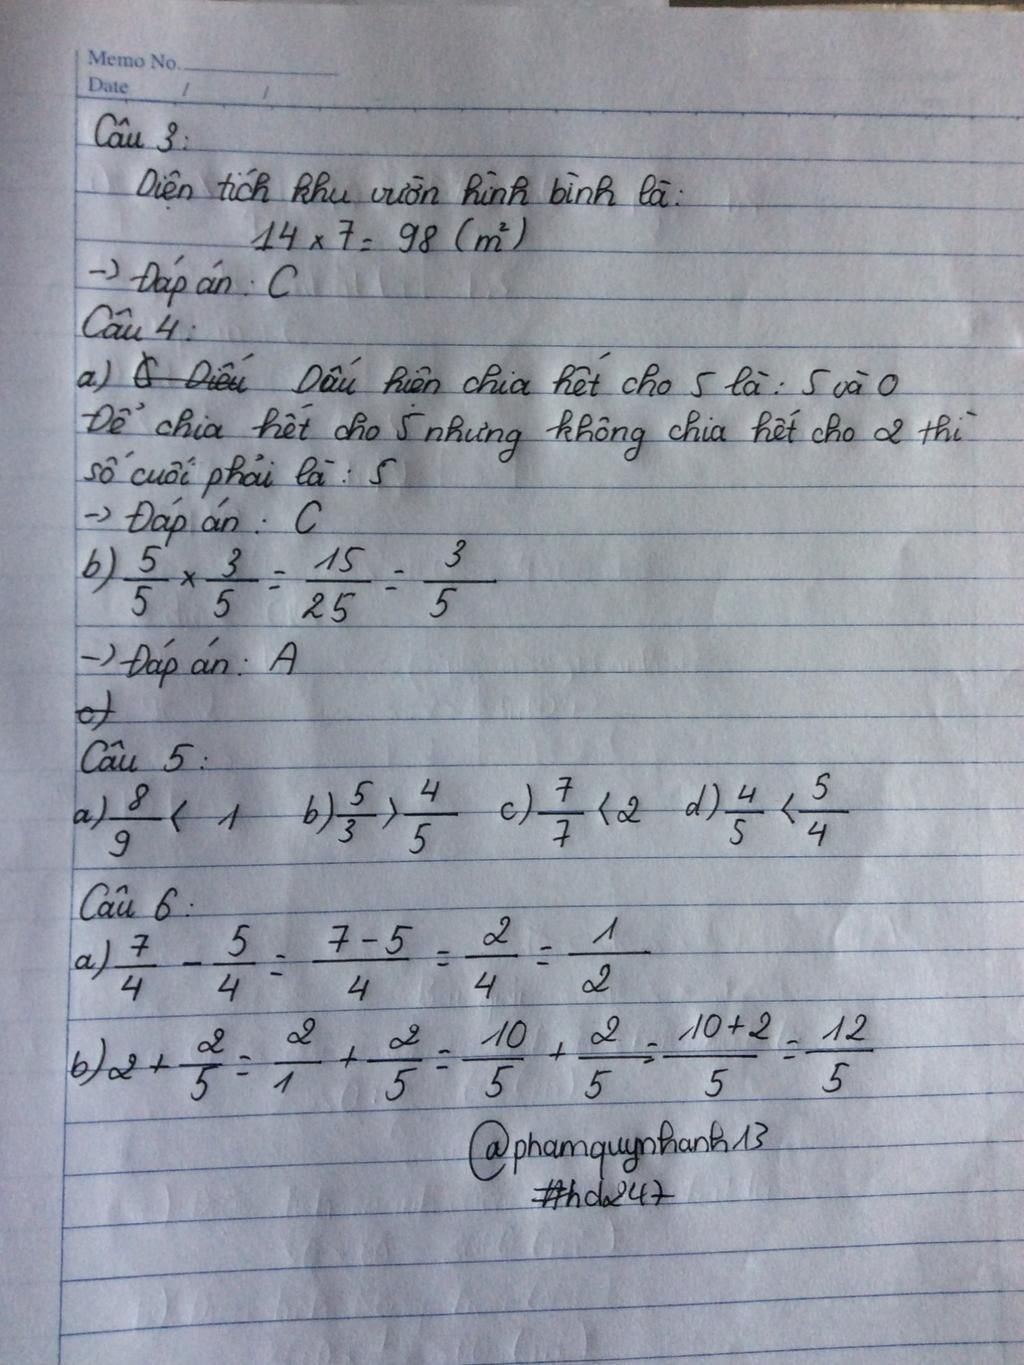 Memo No.
Date / /
Câu 3:
Diện tích khu vườn hình bình là:
14 × 7 = 98 (m²)
-> Đáp án: C
Câu 4:
a) Dấu hiên chia hết cho 5 là: 5 và 0
Để chia hết cho 5 nhưng không chia hết cho 2 thì
số cuối phải là: 5
-> Đáp án: C
b) 5/5 × 3/5 = 15/25 = 3/5
-> Đáp án: A
c)
Câu 5:
a) 8/9 < 1 b) 5/3 > 4/5 c) 7/7 < 2 d) 4/5 < 5/4
Câu 6:
a) 7/4 - 5/4 = 7-5/4 = 2/4 = 1/2
b) 2 + 2/5 = 2/1 + 2/5 = 10/5 + 2/5 = 10+2/5 = 12/5
@phamquynhanh13
#hd247